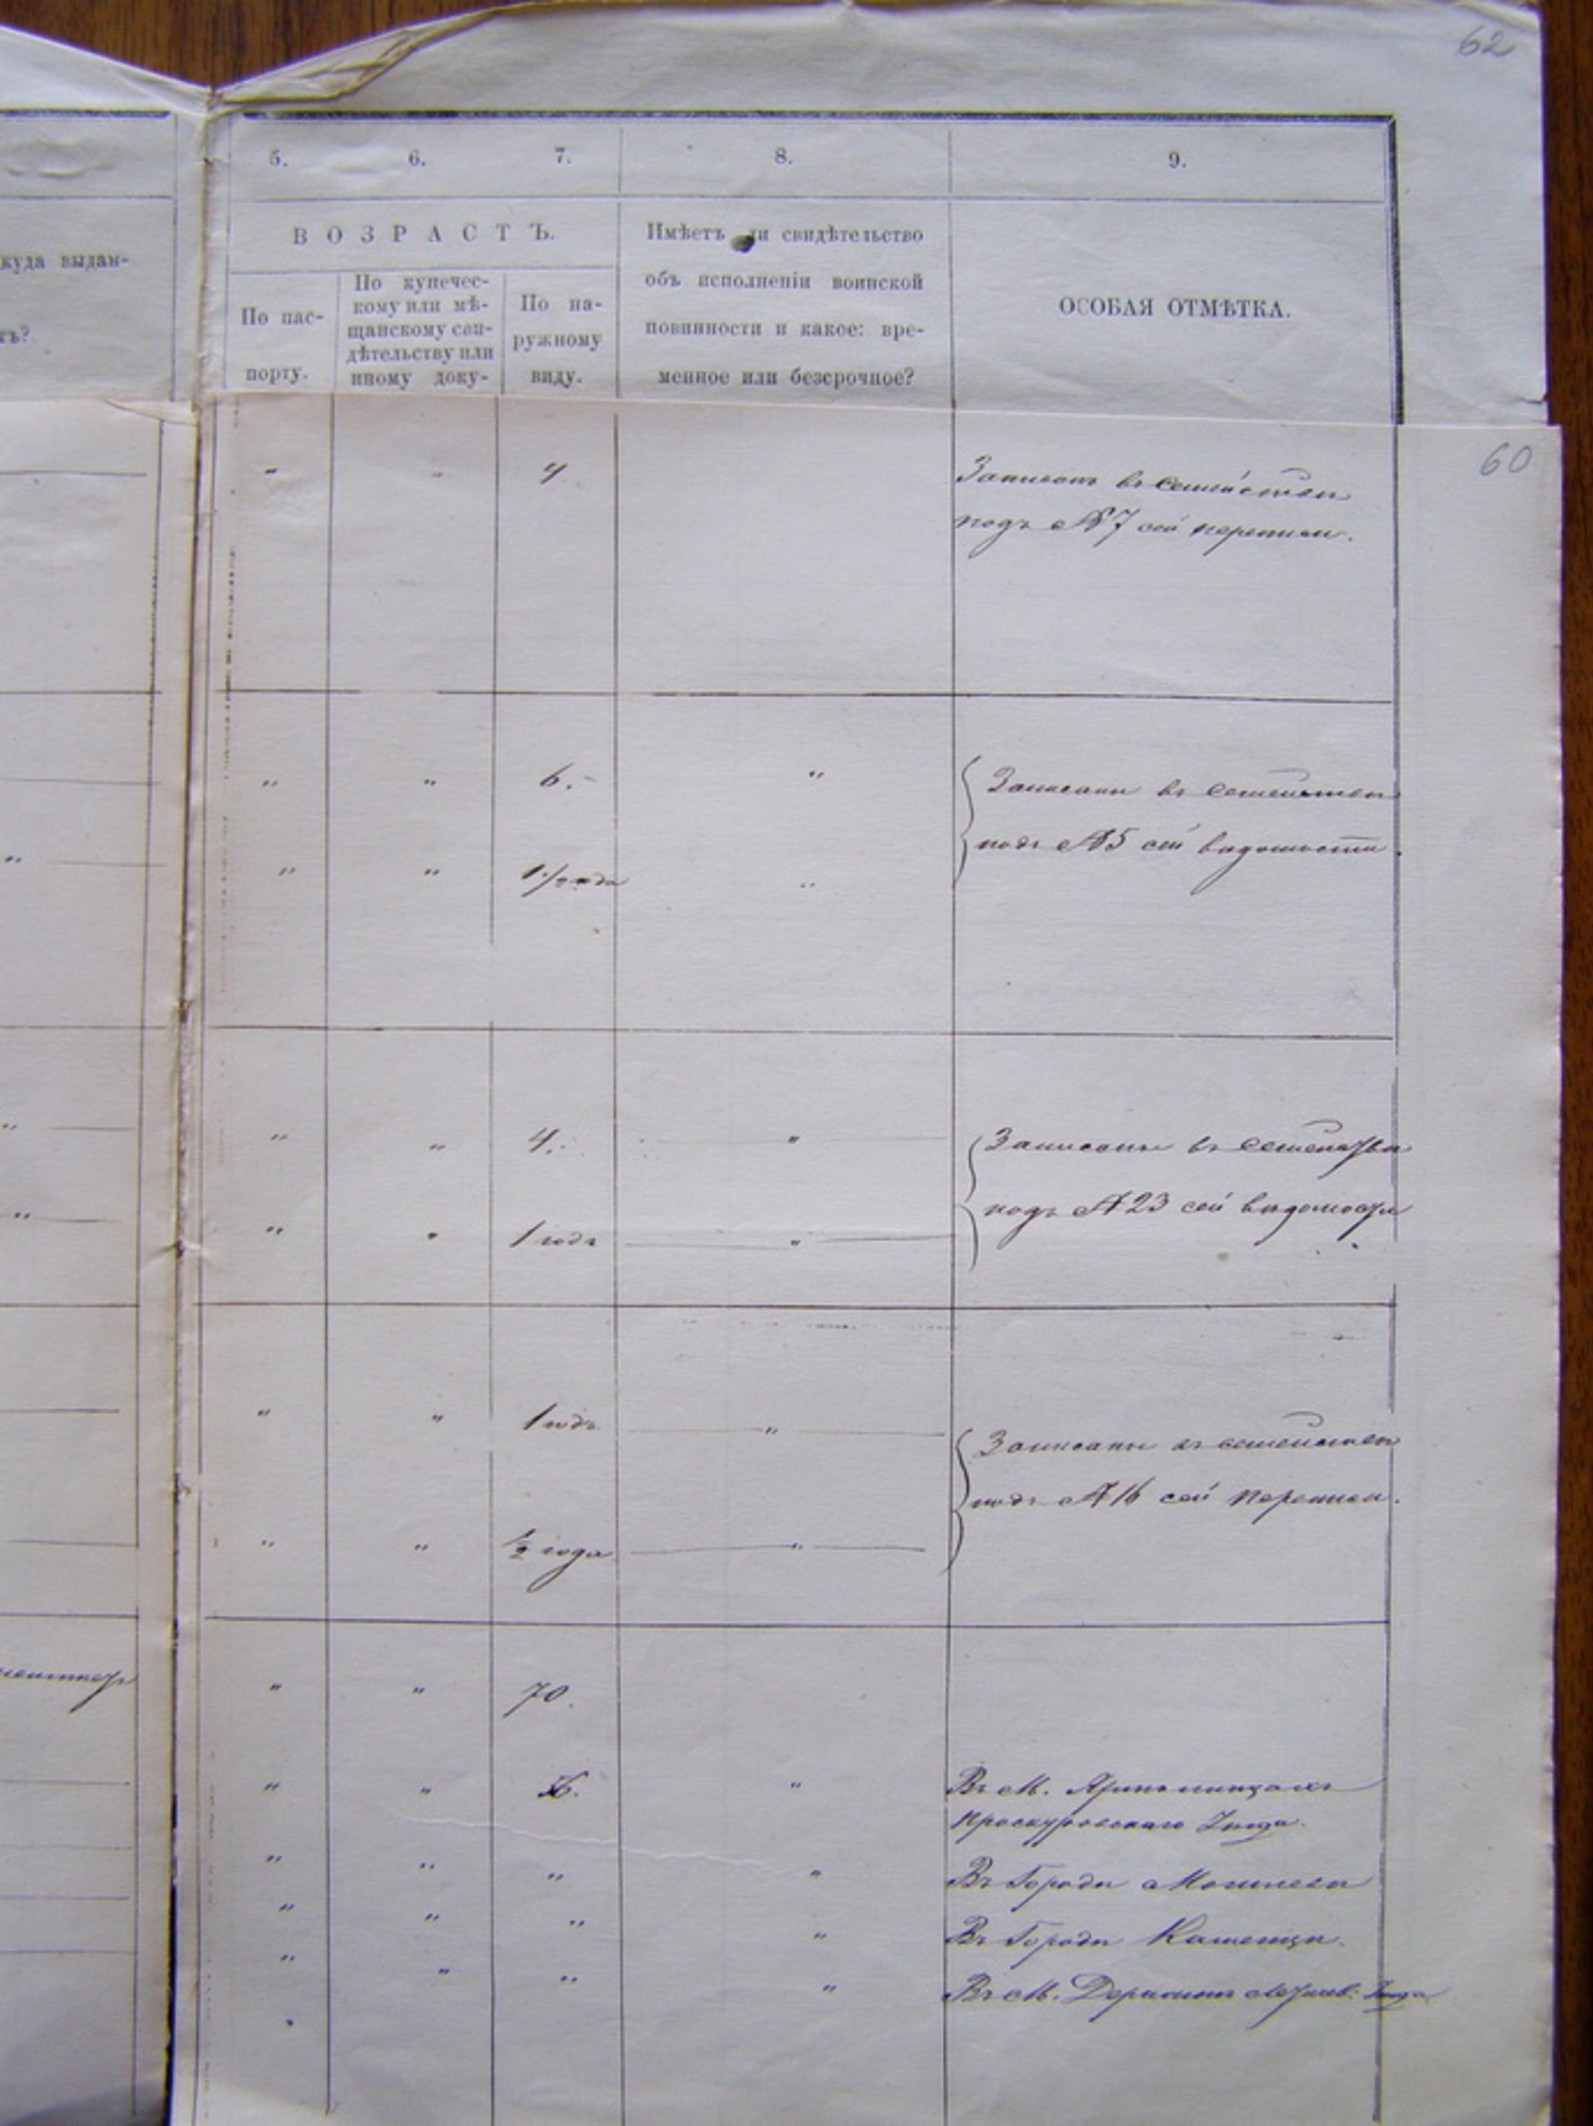 62
5. 6. 7. 8. 9.
куда выдан-
ть?
ВОЗРАСТЪ.
По пас-
порту.
По купечес-
кому или мѣ-
щанскому сви-
дѣтельству или
иному доку-
По на-
ружному
виду.
Имѣетъ ли свидѣтельство
объ исполненіи воинской
повинности и какое: вре-
менное или безсрочное?
ОСОБАЯ ОТМѢТКА.
60
" " 4 Записанъ въ семействѣ
подъ № 7 сей переписи.
" " 6. " Записаны въ семействѣ
подъ № 5 сей вѣдомости.
" " года "
" " 4. " Записаны въ семействѣ
подъ № 23 сей вѣдомости
" " 1 годъ "
" " 1 годъ " Записаны въ семействѣ
подъ № 16 сей переписи.
" " ½ года "
" " 70.
" " " Въ М.
Проскуровскаго Уѣзда.
" " " " Въ Городѣ Могилевѣ
" " " " Въ Городѣ Каменцѣ.
" " " " Въ М. Деражнѣ Уѣзда